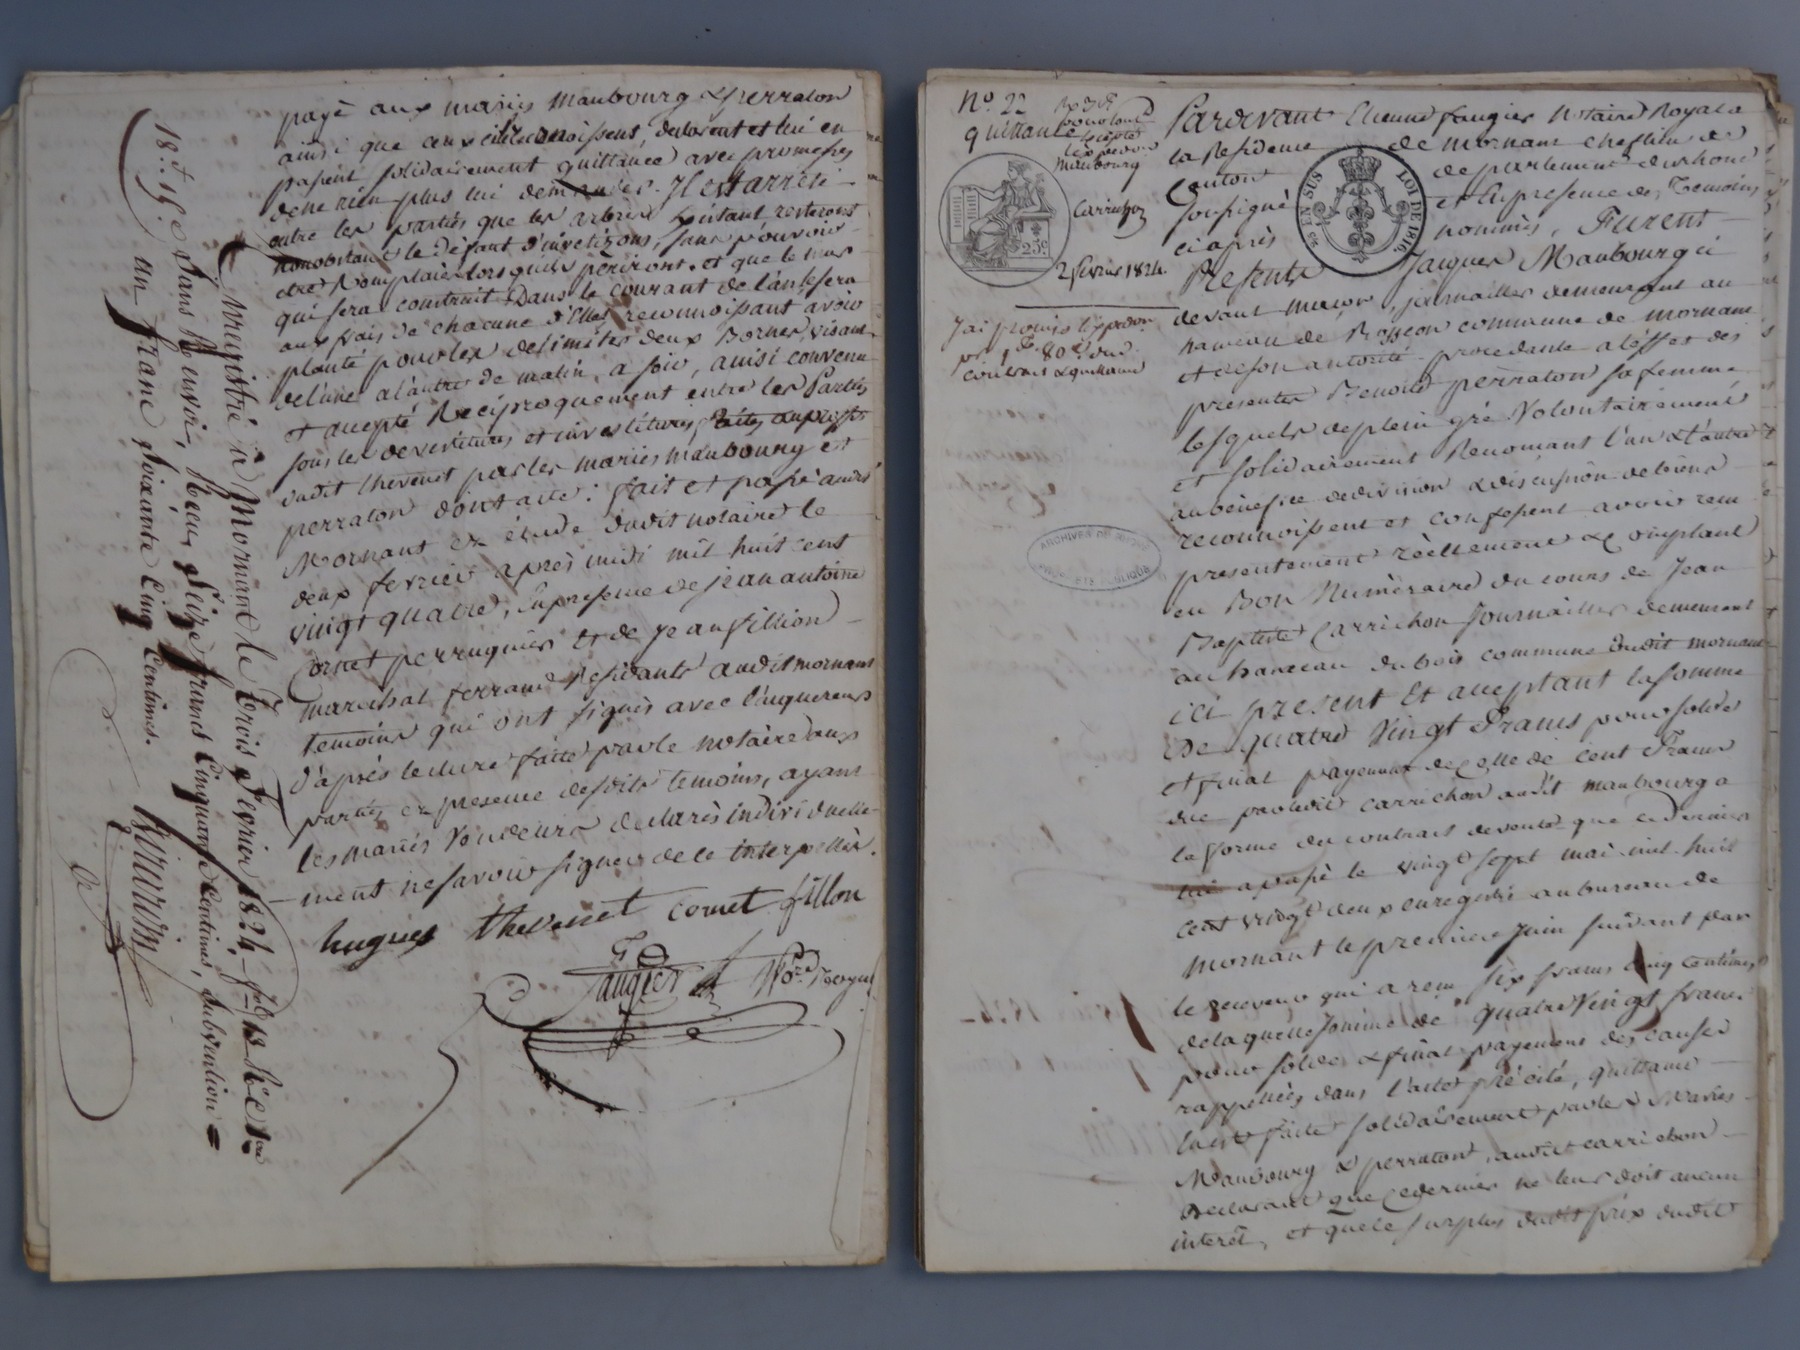 payé aux mariés Maubourg & perraton
ainsi que ceux cile reconnoissent, declarent et lui en
passent solidairement quittance avec promesses
de ne rien plus lui demander. Il est arrêté
entre les parties que les arbres existant resteront
nonobstant le défaut d'invetizons, sans pouvoir
etre Remplacer lorsquils periront. et que le mur
qui sera construit Dans le courant de l'an le sera
aux frais de chacune d'Elles reconnoissant avoir
planté pour les delimiter deux Bornes, visant
de l'une a l'autre de matin, a soir, ainsi convenu
et accepté Réciproquement entre les Parties
sous les devestitures et investitures, faites au profit
dudit thevenet par les mariés maubourg et
perraton dont acte : fait et passé audit
Mornant en étude dudit notaire le
deux fevrier après midi mil huit cent
vingt quatre, En presence de jean antoine
Cornet perruquier et de Jean fillion
marechal ferrand Residants audit mornant
temoins qui ont signés avec l'aquereur
d'après lecture faitte par le notaire aux
parties en presence desdits temoins, ayant
les mariés Vendeurs declarés individuelle-
-ment ne savoir signer de ce interpellés.
hugues thevenet cornet fillon
Faugier Nore. Royal
Enregistré à Mornant le Trois Fevrier 1824 fol. 18 Rc. Cre
18. et 19. Sans Renvoi, Reçu Seize francs Cinquante Centimes, Subvention =
un franc Soixante Cinq Centimes.
No. 22
quittance
pour
Maubourg
Carrichon
25c
2 fevrier 1824.
J'ai promis l'expedon.
contrat & quittance
EN SUS
LOI DE 1816.
ARCHIVES DU RHONE
PROPRIETE PUBLIQUE
Pardevant Etienne faugier Notaire Royal a
la Residence de Mornant Chef lieu de
Canton departement du rhone
soussigné et En presence des Temoins
ci après nommés, Furent
Presents Jacques Maubourg ci
devant maçon, journaillier demeurant au
hameau de Rosseon commune de mornant
et de son autorité procedante a l'effet des
presentes Benoite perraton sa femme
lesquels de plein gré Volontairement
et solidairement Renonçant l'un & l'autre
au bénéfice de division & discussion de biens
reconnoissent et confessent avoir reçu
presentement réellement & comptant
en Bon Numéraire du cours de Jean
Baptiste Carrichon Journaillier demeurant
au hameau du bois commune dudit mornant
ici present Et acceptant la somme
De quatre Vingt Francs pour solde
et final payement de Celle de cent Francs
due par ledit carrichon audit maubourg a
la forme du contrat de vente que ce dernier
lui a passé le vingt sept mai mil huit
cent vingt deux enregistré au bureau de
mornant le premier Juin suivant par
le receveur qui a reçu six francs cinq centimes
de laquelle somme de quatre Vingt francs
pour solde & final payement des causes
rappellées dans l'acte précité, quittance
lui est faite solidairement par les Mariés
Maubourg & perraton, audit carrichon
Declarant que Ce dernier ne leur doit aucun
interêt, et que le surplus dudit prix dudit